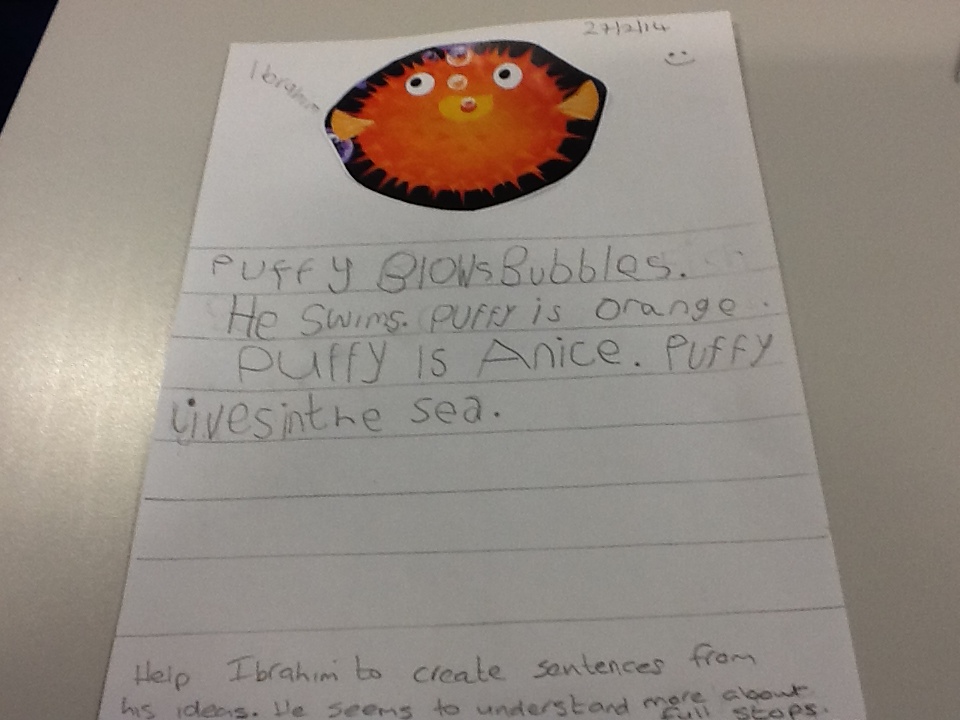 27/2/14
Ibrahim
Puffy BlowsBubbles.
He swims. puffy is orange.
Puffy Is A nice. Puffy
livesinthe sea.
Help Ibrahim to create sentences from
his ideas. He seems to understand more about
full stops.